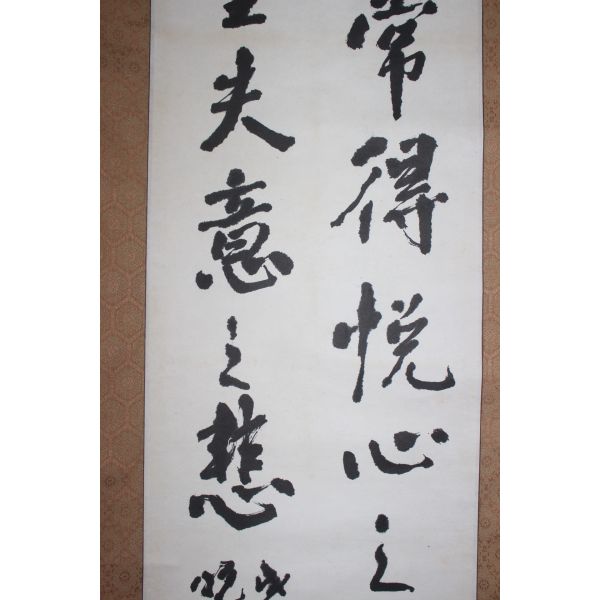 常得悦心之
生失意之悲